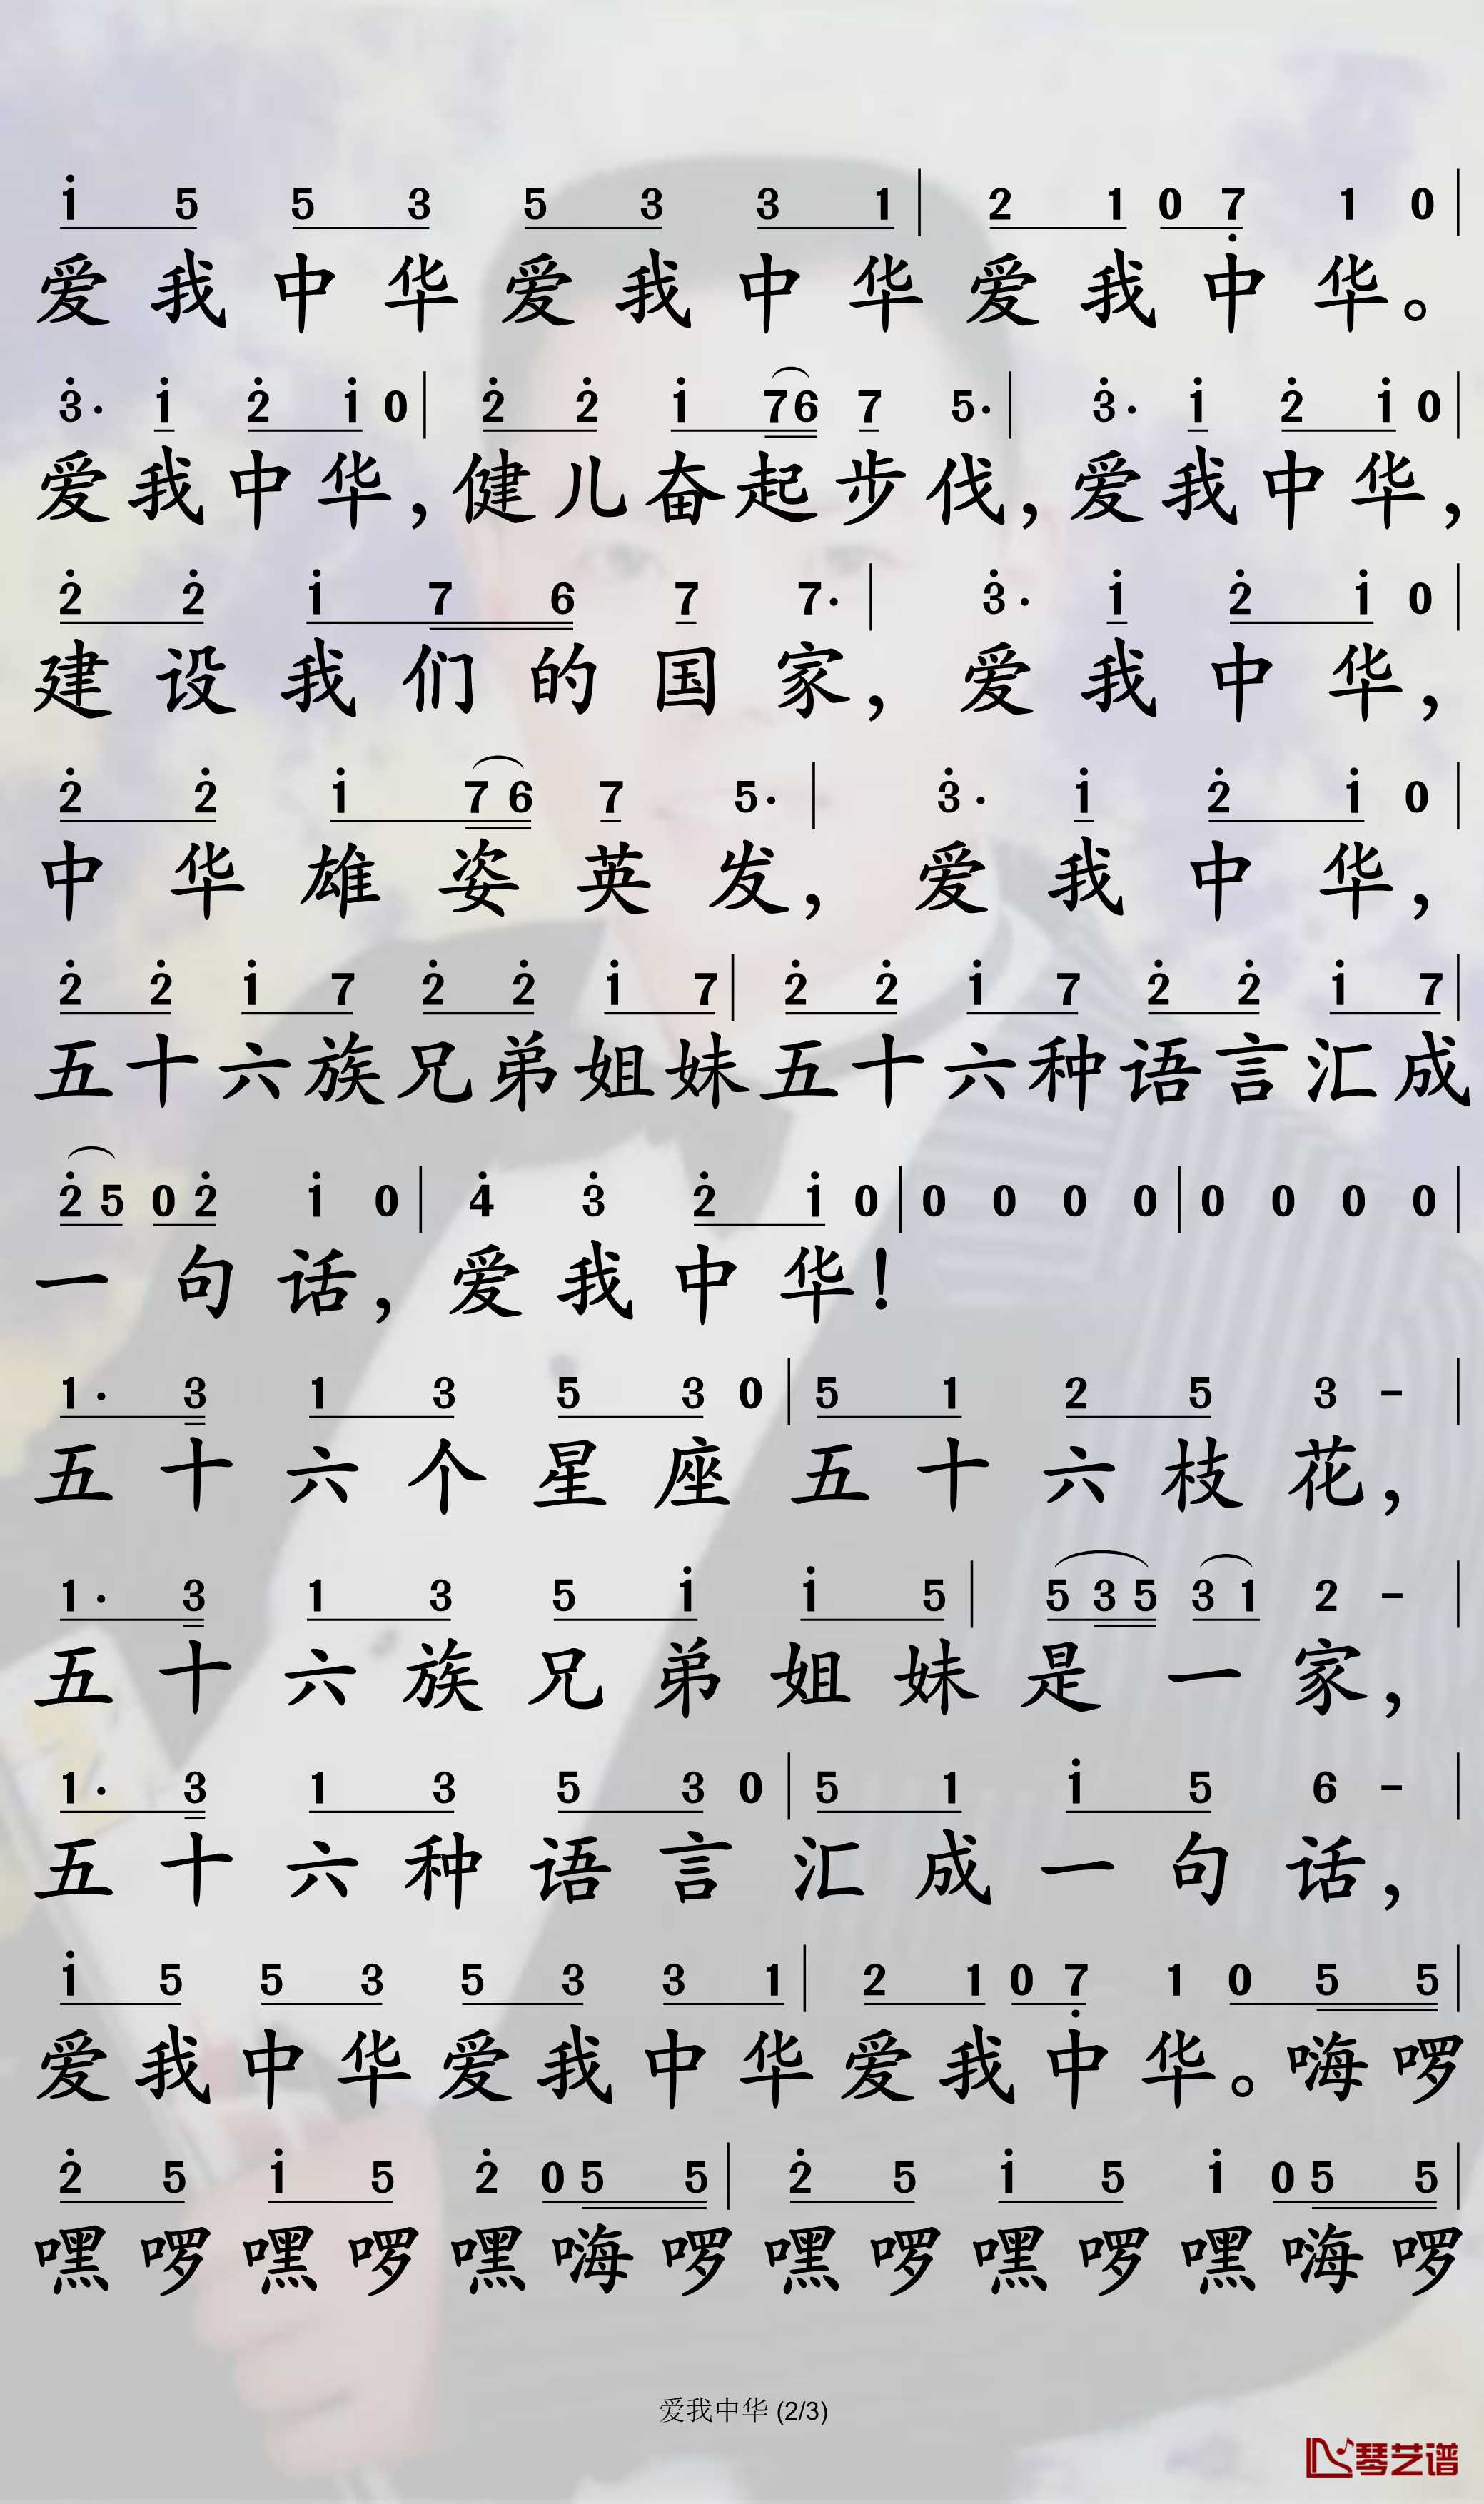 1 5 5 3 5 3 3 1 | 2 1 0 7 1 0 |
爱我中华爱我中华爱我中华。
3· 1 2 1 0 | 2 2 1 76 7 5· | 3· 1 2 1 0 |
爱我中华，健儿奋起步伐，爱我中华，
2 2 1 7 6 7 7· | 3· 1 2 1 0 |
建设我们的国家，爱我中华，
2 2 1 7 6 7 5· | 3· 1 2 1 0 |
中华雄姿英发，爱我中华，
2 2 1 7 2 2 1 7 | 2 2 1 7 2 2 1 7 |
五十六族兄弟姐妹五十六种语言汇成
2 5 0 2 1 0 | 4 3 2 1 0 | 0 0 0 0 | 0 0 0 0 |
一句话，爱我中华！
1· 3 1 3 5 3 0 | 5 1 2 5 3 - |
五十六个星座五十六枝花，
1· 3 1 3 5 1 1 5 | 5 3 5 3 1 2 - |
五十六族兄弟姐妹是一家，
1· 3 1 3 5 3 0 | 5 1 1 5 6 - |
五十六种语言汇成一句话，
1 5 5 3 5 3 3 1 | 2 1 0 7 1 0 5 5 |
爱我中华爱我中华爱我中华。嗨啰
2 5 1 5 2 0 5 5 | 2 5 1 5 1 0 5 5 |
嘿啰嘿啰嘿嗨啰嘿啰嘿啰嘿嗨啰
爱我中华 (2/3)
琴艺谱